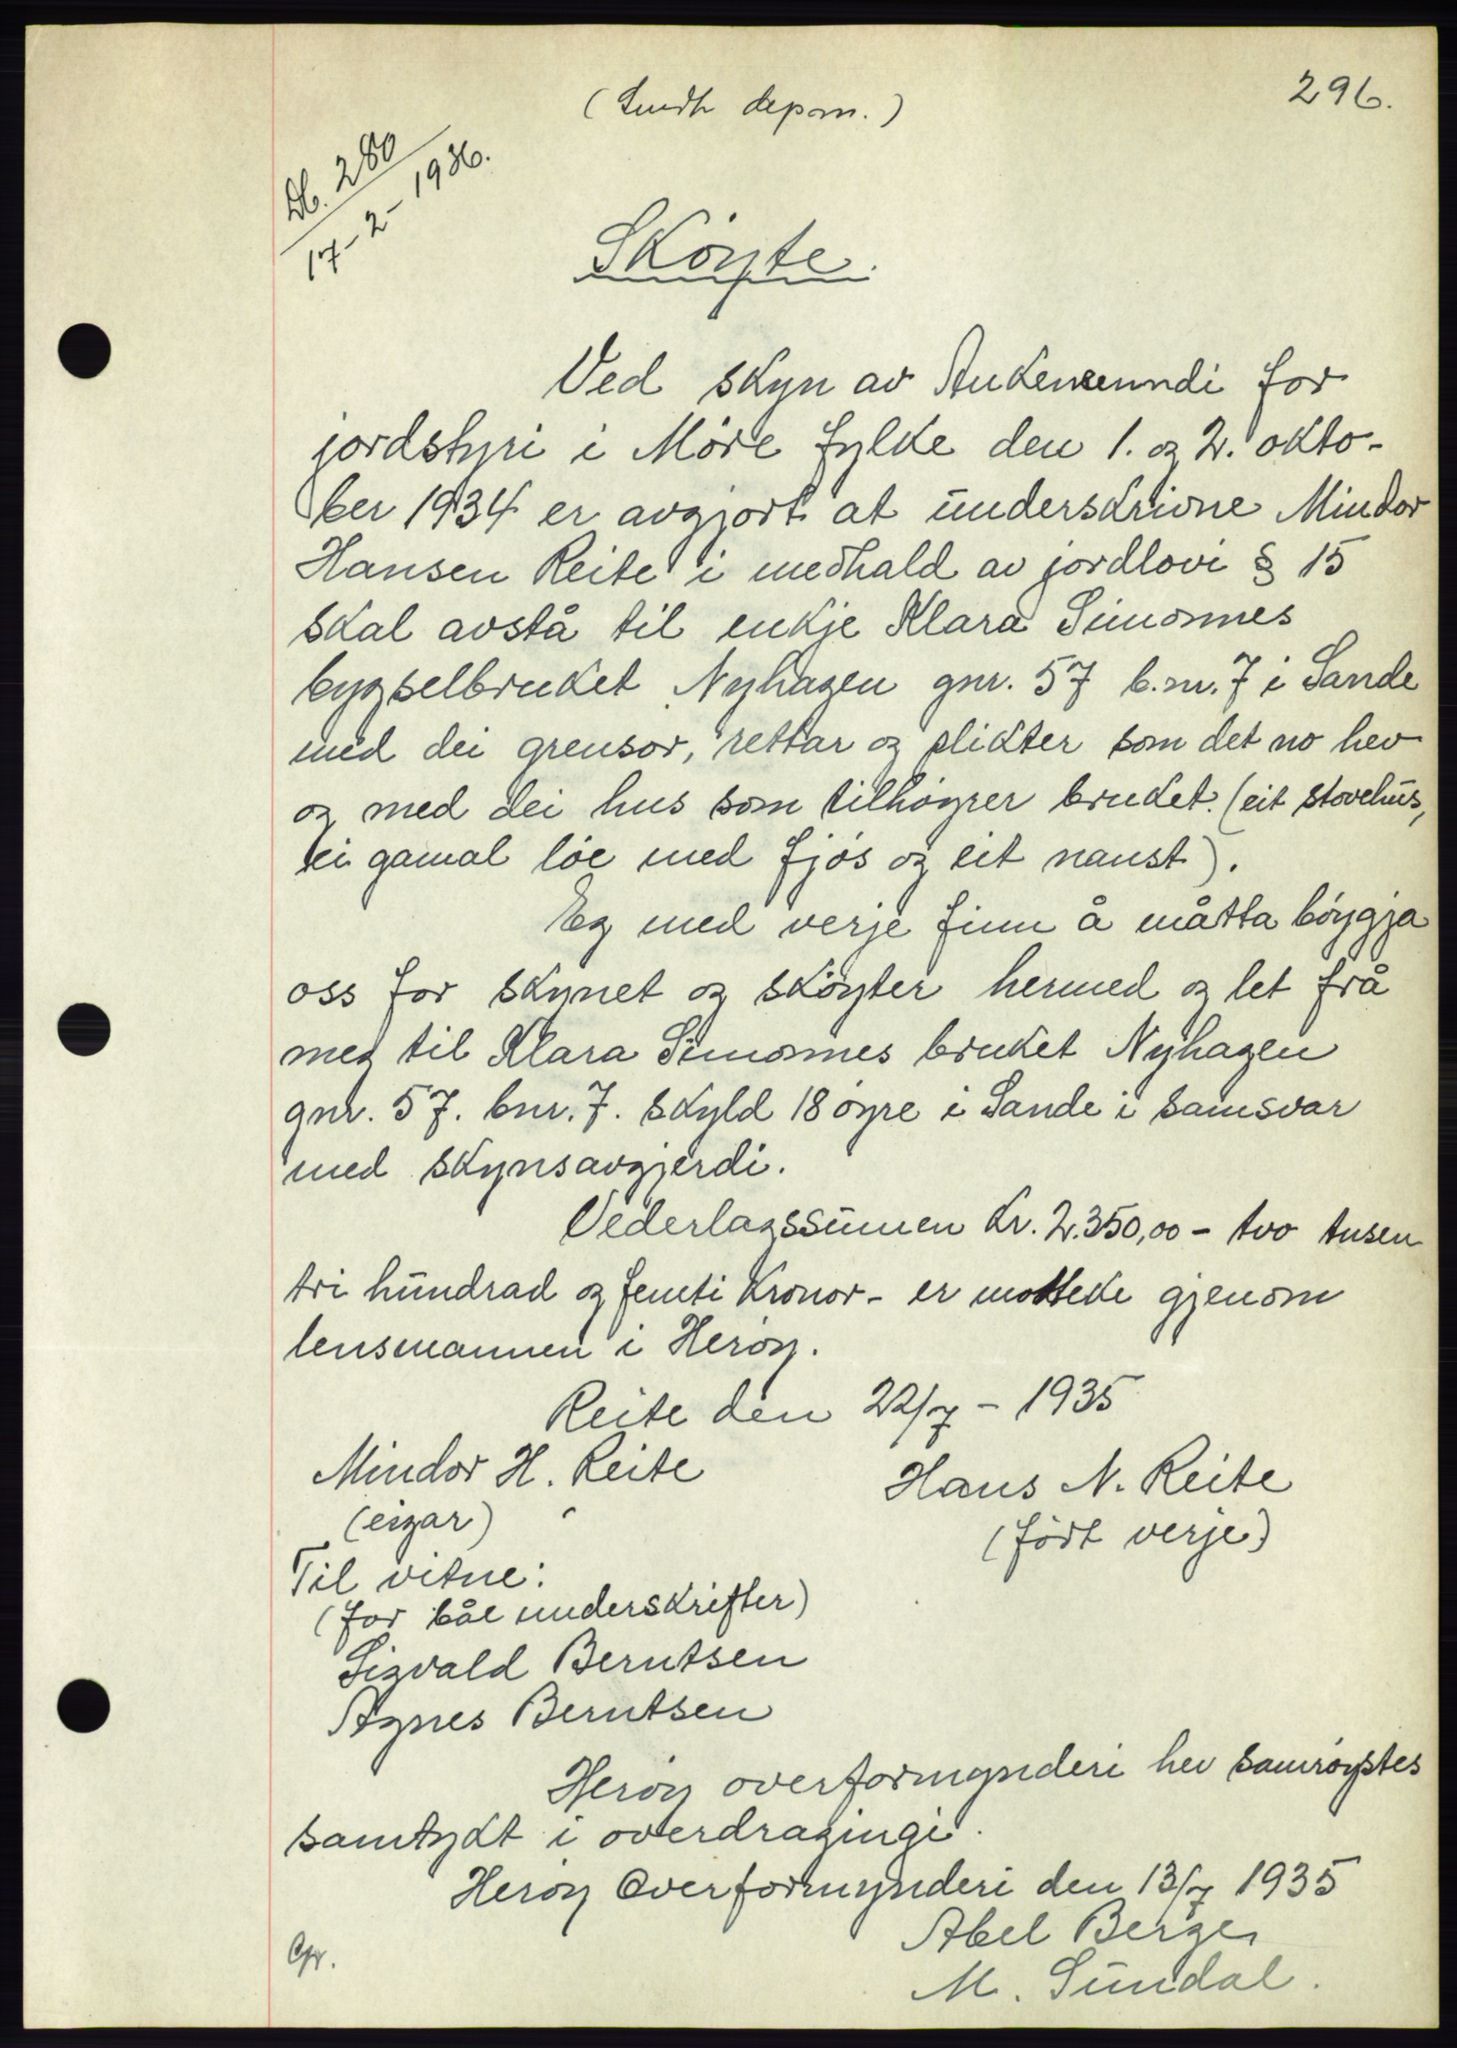 296.
( depon.)
Db. 280
17-2-1936.
Skøyte.
Ved skyn av Ankenemndi for
jordstyri i Møre fylke den 1. og 2. okto-
ber 1934 er avgjort at underskrivne Mindor
Hansen Reite i medhald av jordlovi § 15
skal avstå til enkje Klara Simonnes
bygselbruket Nyhagen gnr. 57 b.nr. 7 i Sande
med dei grensor, rettar og plikter som det no hev
og med dei hus som tilhøyrer bruket. (eit stovehus,
ei gamal løe med fjøs og eit naust).
Eg med verje finn å måtta bøygja
oss for skynet og skøyter hermed og let frå
meg til Klara Simonnes bruket Nyhagen
gnr. 57. bnr. 7. skyld 18 øyre i Sande i samsvar
med skynsavgjerdi.
Vederlagssumen kr. 2.350,00 - tvo tusen
tri hundrad og femti kronor - er motteke gjenom
lensmannen i Herøy.
Reite den 22/7 - 1935
Mindor H. Reite
(eigar)
Hans N. Reite
(født verje)
Til vitne:
(for båe underskrifter)
Sigvald Berntsen
Agnes Berntsen
Herøy overformynderi hev samrøystes
samtykt i overdragingi.
Herøy Overformynderi den 13/7 1935
Abel Berge,
M. Sundal.